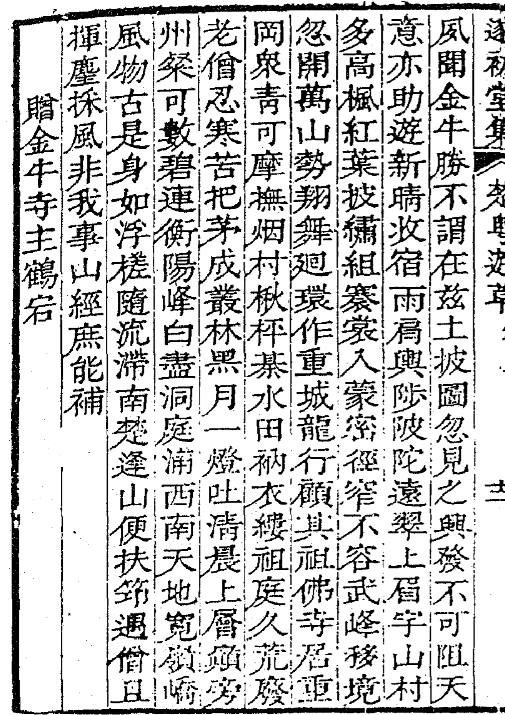 遂初堂集　楚粵遊草　十一
夙聞金牛勝不謂在茲土披圖忽見之興發不可阻天
意亦助遊新晴收宿雨肩輿陟陂陀遠翠上眉宇山村
多高楓紅葉披繡組褰裳入蒙密徑窄不容武峰移境
忽開萬山勢翔舞廻環作重城龍行顧其祖佛寺居重
岡衆青可摩撫烟村楸枰棊水田衲衣縷祖庭久荒廢
老僧忍寒苦把茅成叢林黑月一燈吐清晨上層巔旁
州粲可數碧連衡陽峰白盡洞庭浦西南天地寬嶺嶠
風物古是身如浮槎隨流滯南楚逢山便扶筇遇僧且
揮麈採風非我事山經庶能補
贈金牛寺主鶴宕